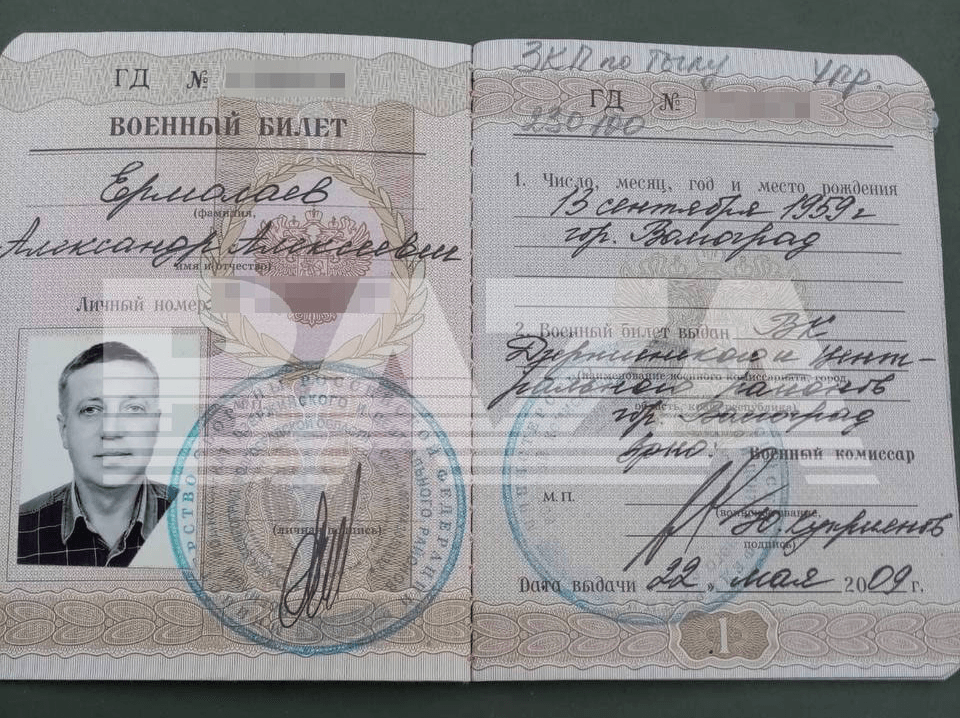 ГД №
ВОЕННЫЙ БИЛЕТ
Ермолаев
(фамилия,
Александр Алексеевич
имя и отчество)
Личный номер
(личная подпись)
ЗКП по тылу Упр.
ГД №
230100
1. Число, месяц, год и место рождения
13 сентября 1959 г
гор. Волгоград
2. Военный билет выдан ВК
Дзержинского и Цент-
(наименование военного комиссариата, город,
рального районов
область, край, республика)
гор. Волгоград
Врио: Военный комиссар
М.П.
(воинское звание,
Н. Куприенов
подпись)
Дата выдачи 22 " мая 2009 г.
1